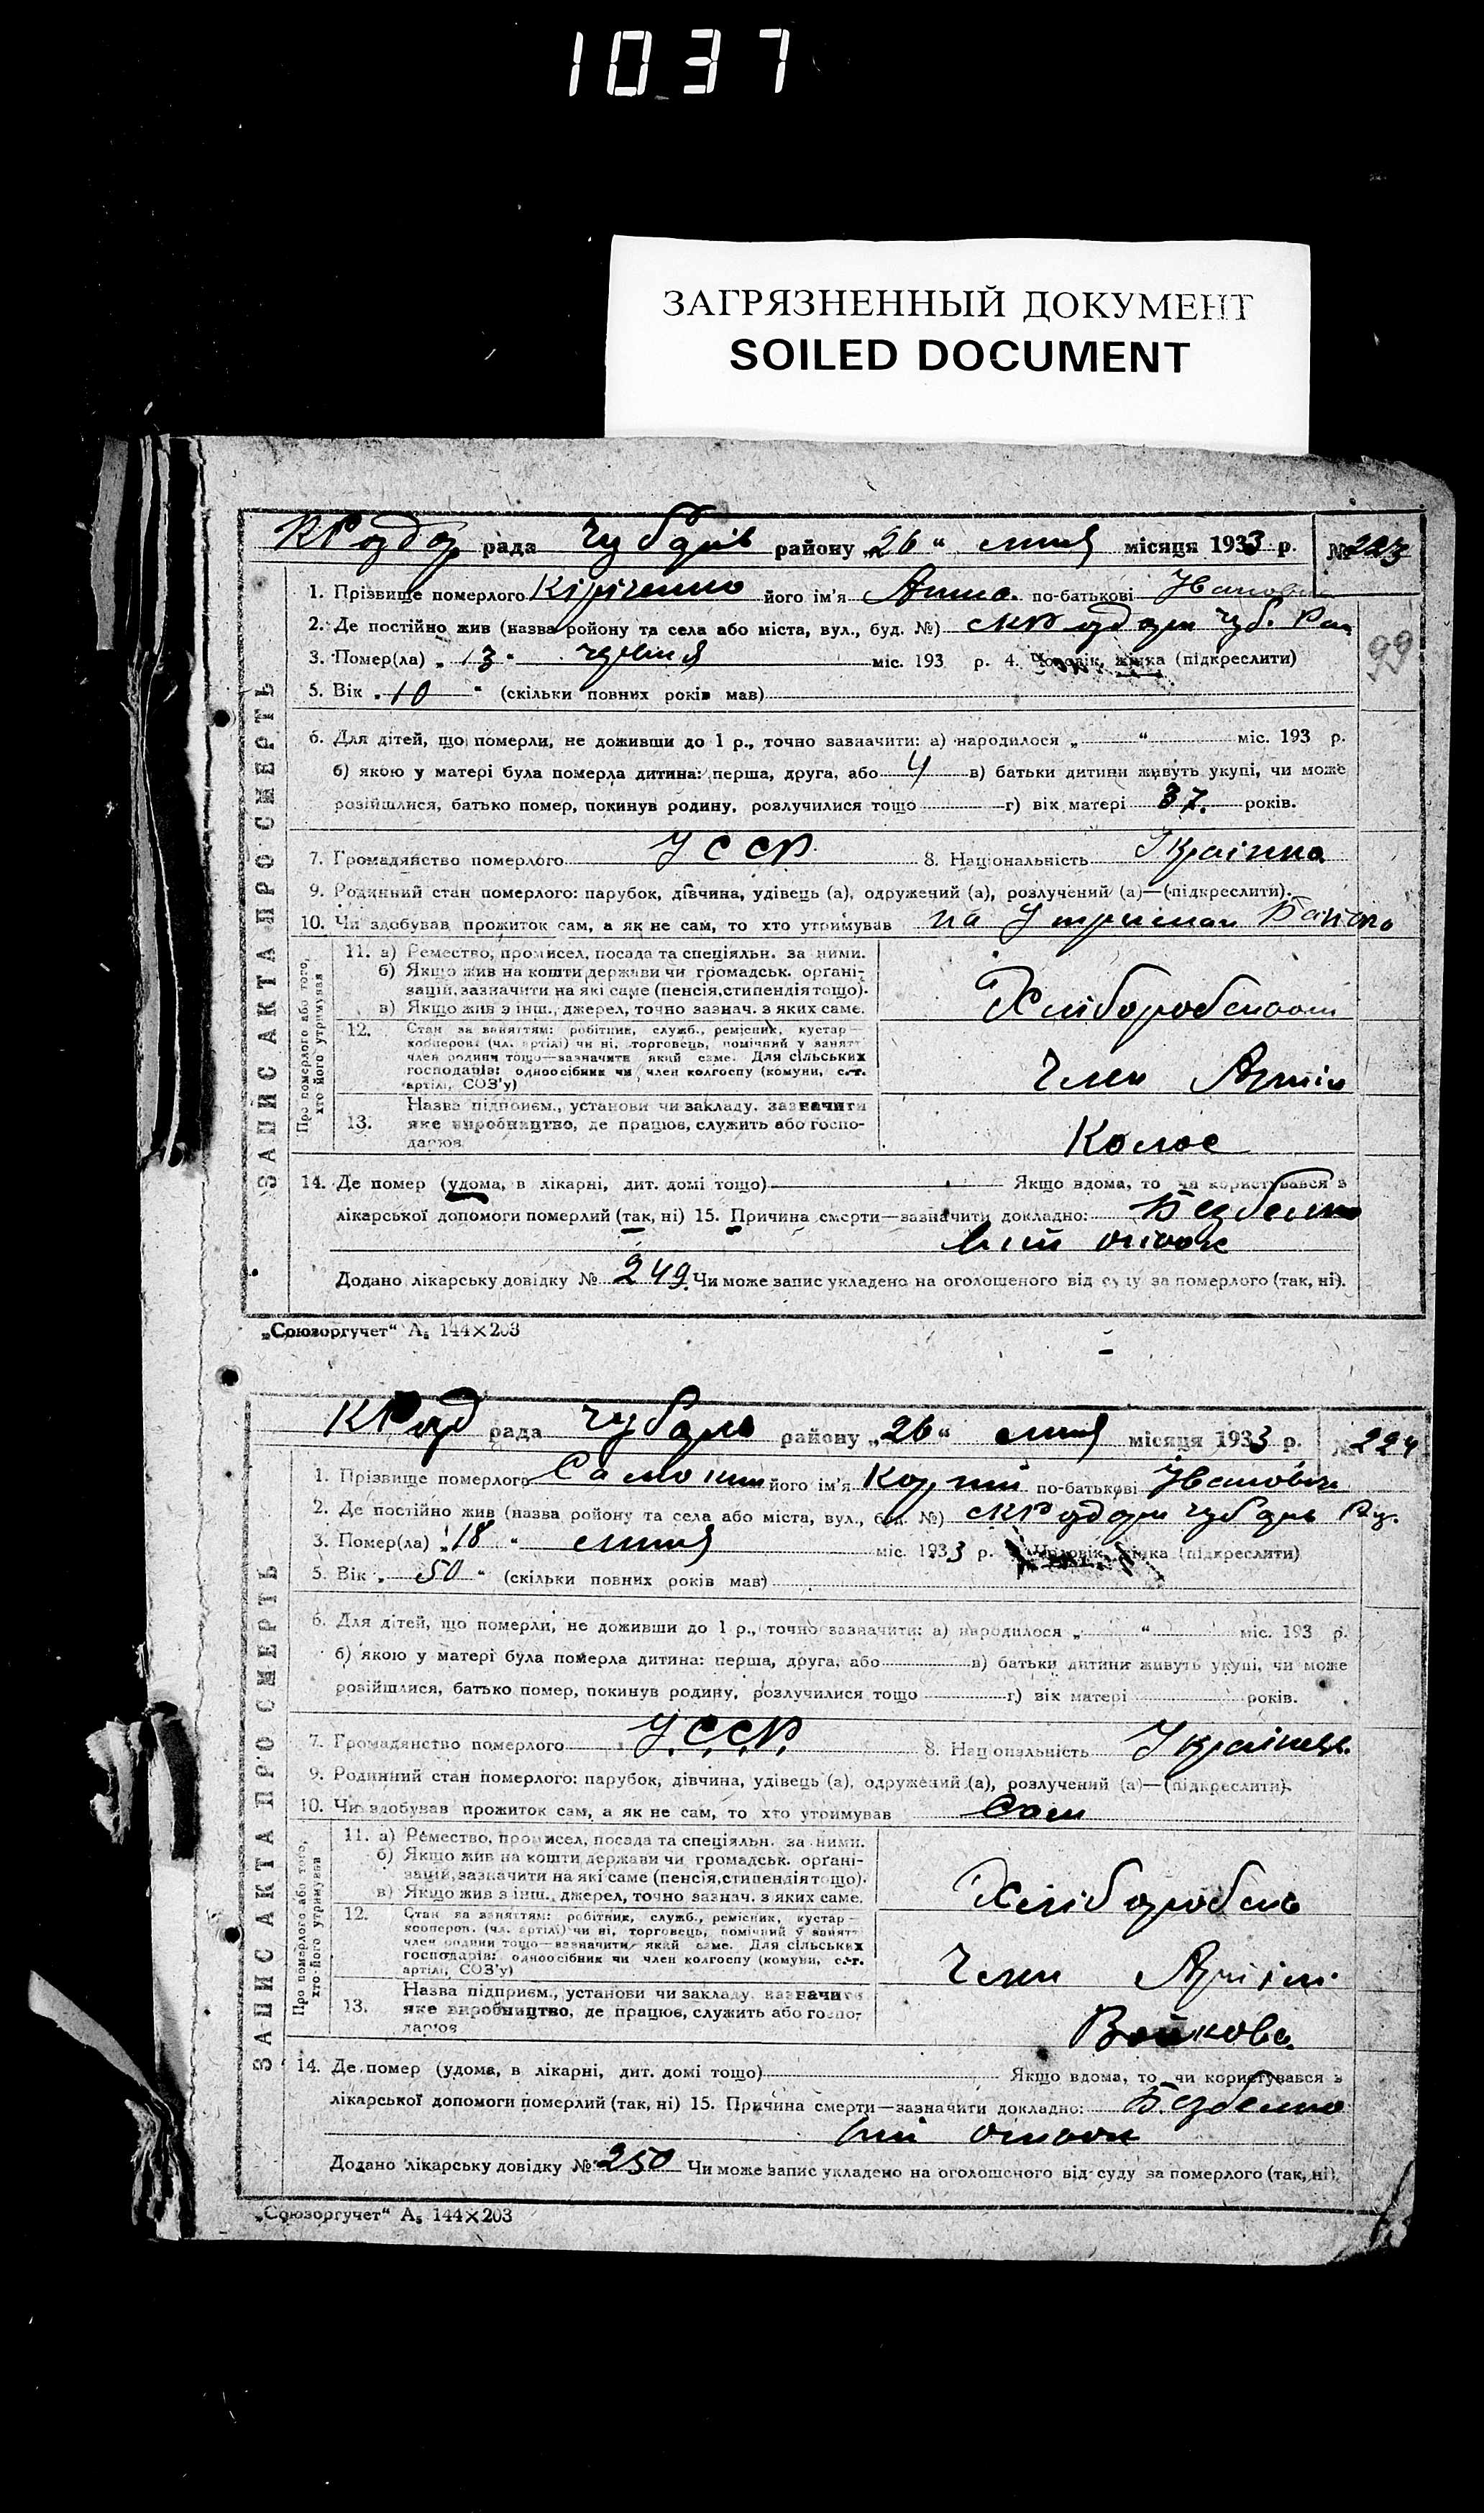 1037
ЗАГРЯЗНЕННЫЙ ДОКУМЕНТ
SOILED DOCUMENT
рада района „26“ місяця 1933 р. № 223
99
ЗАПИС АКТА ПРО СМЕРТЬ
1. Прізвище померлого Кіріченко його ім'я Анна по-батькові
2. Де постійно жив (назва ройону та села або міста, вул., буд. №)
3. Помер(ла) „13“ червня міс. 193 р. 4. Чоловік, жінка (підкреслити)
5. Вік „10“ (скільки повних років мав)
6. Для дітей, що померли, не доживши до 1 р., точно зазначити: а) народилося „ “ міс. 193 р.
б) якою у матері була померла дитина: перша, друга, або 4 в) батьки дитини живуть укупі, чи може
розійшлися, батько помер, покинув родину, розлучилися тощо г) вік матері 37. років.
7. Громадянство померлого УССР 8. Національність Українка
9. Родинний стан померлого: парубок, дівчина, удівець (а), одружений (а), розлучений (а)—(підкреслити).
10. Чи здобував прожиток сам, а як не сам, то хто утримував на
Про померлого або того, хто його утримував
11. а) Ремество, промисел, посада та спеціяльн. за ними.
б) Якщо жив на кошти держави чи громадськ. органі-
зацій, зазначити на які саме (пенсія, стипендія тощо).
в) Якщо жив з інш. джерел, точно зазнач. з яких саме.
12. Стан за заняттям: робітник, служб., ремісник, кустар—
коопероп. (чл. артілі) чи ні, торговець, помічний у занятт
член родини тощо—зазначити який саме. Для сільських
господарів: одноосібник чи член колгоспу (комуни, с.-г.
артілі, СОЗ'у)
Член Артілі
13. Назва підприєм., установи чи закладу, зазначити
яке виробництво, де працює, служить або госпо-
дарює
Колос
14. Де помер (удома, в лікарні, дит. домі тощо) Якщо вдома, то чи користувався з
лікарської допомоги померлий (так, ні) 15. Причина смерти—зазначити докладно: Безбелко
вий отьок
Додано лікарську довідку № 249. Чи може запис укладено на оголошеного від суду за померлого (так, ні).
„Союзоргучет“ А₅ 144×203
рада району „26“ місяця 1933 р. № 224
ЗАПИС АКТА ПРО СМЕРТЬ
1. Прізвище померлого його ім'я Корній по-батькові Іванович
2. Де постійно жив (назва ройону та села або міста, вул., буд. №)
3. Помер(ла) „18“ липня міс. 1933 р. Чоловік, жінка (підкреслити)
5. Вік „50“ (скільки повних років мав)
6. Для дітей, що померли, не доживши до 1 р., точно зазначити: а) народилося „ “ міс. 193 р.
б) якою у матері була померла дитина: перша, друга, або в) батьки дитини живуть укупі, чи може
розійшлися, батько помер, покинув родину, розлучилися тощо г) вік матері років.
7. Громадянство померлого У.С.С.Р. 8. Національність Українець
9. Родинний стан померлого: парубок, дівчина, удівець (а), одружений (а), розлучений (а)—(підкреслити).
10. Чи здобував прожиток сам, а як не сам, то хто утримував Сам
Про померлого або того, хто його утримував
11. а) Ремество, промисел, посада та спеціяльн. за ними.
б) Якщо жив на кошти держави чи громадськ. органі-
зацій, зазначити на які саме (пенсія, стипендія тощо).
в) Якщо жив з інш. джерел, точно зазнач. з яких саме.
12. Стан за заняттям: робітник, служб., ремісник, кустар—
коопероп. (чл. артілі) чи ні, торговець, помічний у занятт
член родини тощо—зазначити який саме. Для сільських
господарів: одноосібник чи член колгоспу (комуни, с.-г.
артілі, СОЗ'у)
Член Артілі
13. Назва підприєм., установи чи закладу, зазначити
яке виробництво, де працює, служить або госпо-
дарює
Войкова
14. Де помер (удома, в лікарні, дит. домі тощо) Якщо вдома, то чи користувався з
лікарської допомоги померлий (так, ні) 15. Причина смерти—зазначити докладно: Безбелко
вий отьок
Додано лікарську довідку № 250 Чи може запис укладено на оголошеного від суду за померлого (так, ні).
„Союзоргучет“ А₅ 144×203